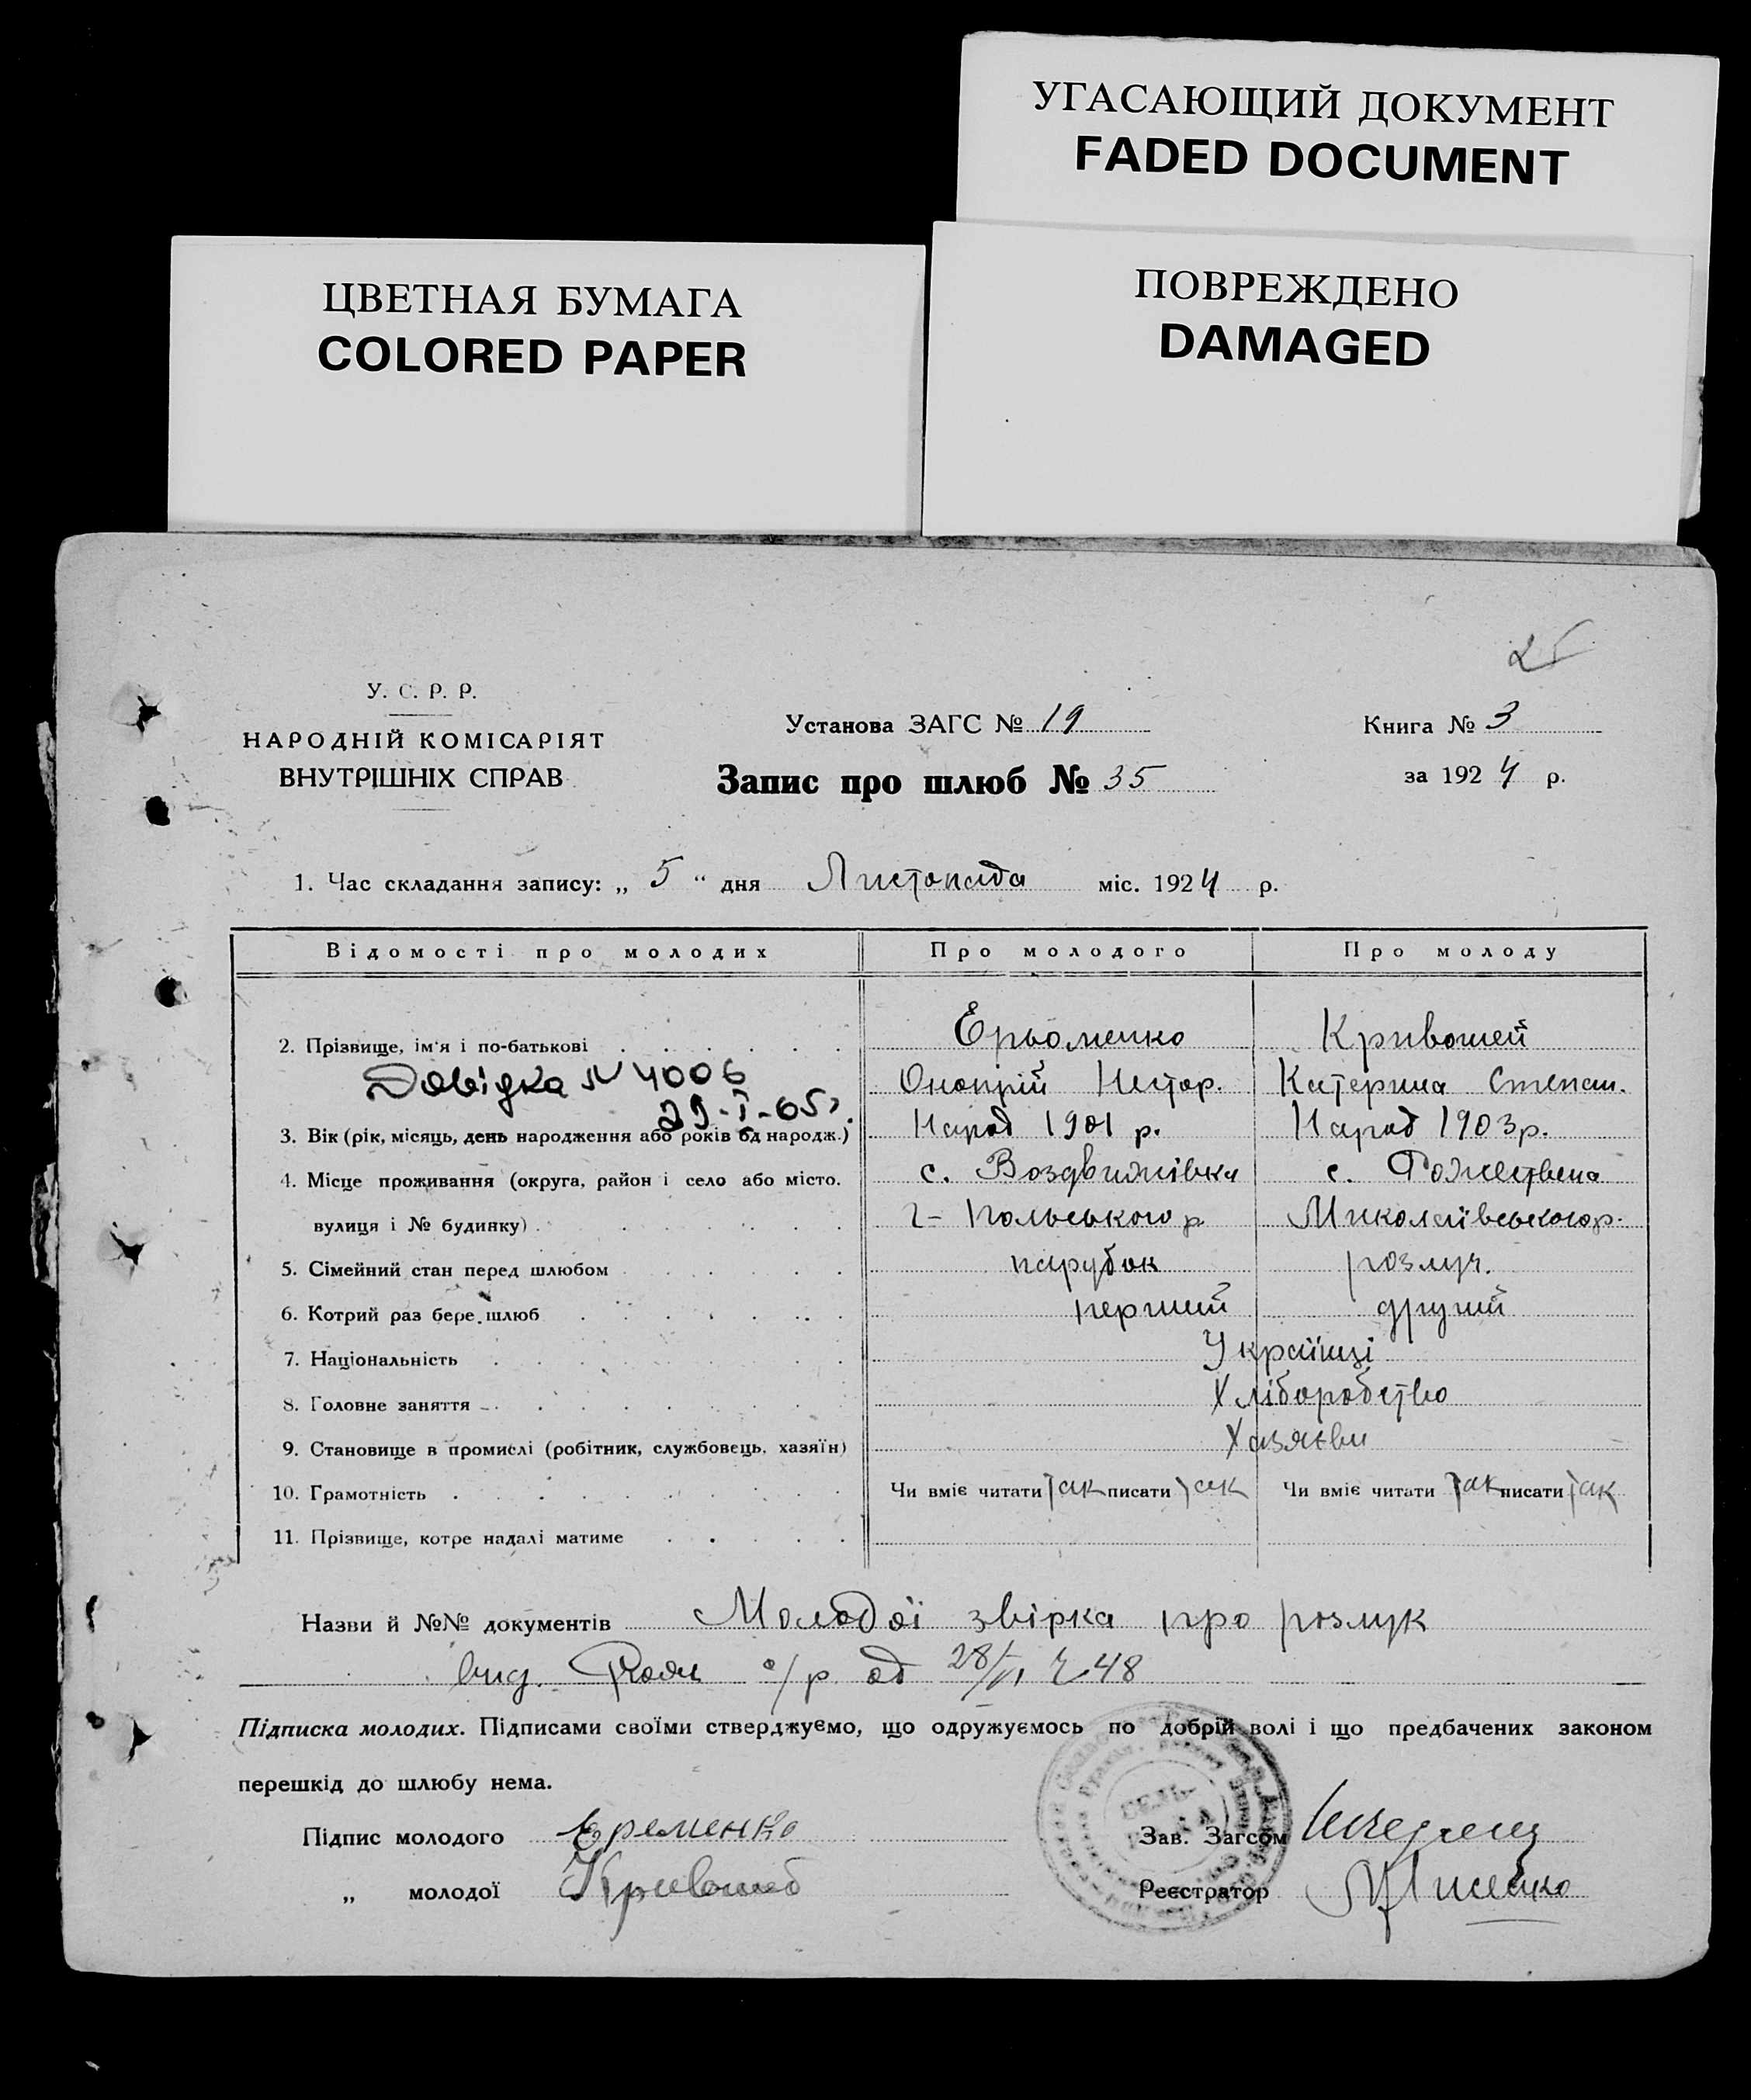 УГАСАЮЩИЙ ДОКУМЕНТ
FADED DOCUMENT
ЦВЕТНАЯ БУМАГА
COLORED PAPER
ПОВРЕЖДЕНО
DAMAGED
У. С. Р. Р.
НАРОДНІЙ КОМІСАРІЯТ
ВНУТРІШНІХ СПРАВ
Установа ЗАГС № 19
Запис про шлюб № 35
Книга № 3
за 1924 р.
1. Час складання запису: „ 5 “ дня Листопада міс. 1924 р.
Відомості про молодих Про молодого Про молоду
2. Прізвище, ім'я і по-батькові Ерьоменко Кривошей
Довідка N 4006 Онопрій Нестор. Катерина Степан.
29-I-65г.
3. Вік (рік, місяць, день народження або років од народж.) Народ 1901 р. Народ 1903 р.
4. Місце проживання (округа, район і село або місто. с. Воздвижівка с. Рожествена
вулиця і № будинку) Г-Польського р Миколаївського р.
5. Сімейний стан перед шлюбом парубок розлуч.
6. Котрий раз бере шлюб перший другий
7. Національність Українці
8. Головне заняття Хліборобство
9. Становище в промислі (робітник, службовець, хазяїн) Хазяєви
10. Грамотність Чи вміє читати так писати так Чи вміє читати так писати так
11. Прізвище, котре надалі матиме
Назви й №№ документів Молодої звірка про розлук
вид. с/р од 28/VI 48
Підписка молодих. Підписами своїми стверджуємо, що одружуємось по добрій волі і що предбачених законом
перешкід до шлюбу нема.
Підпис молодого Еременко Зав. Загсом
„ молодої Кривошей Реєстратор